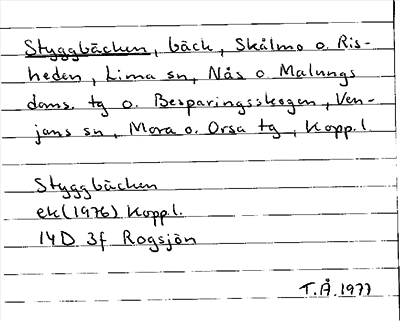 Styggbäcken, bäck, Skålmo o. Ris-
heden, Lima sn, Nås o Malungs
doms. tg o. Besparingsskogen, Ven-
jans sn, Mora o. Orsa tg, Kopp.l.
Styggbäcken
ek(1976) Kopp.l.
14D 3f Rogsjön
T.Å.1977